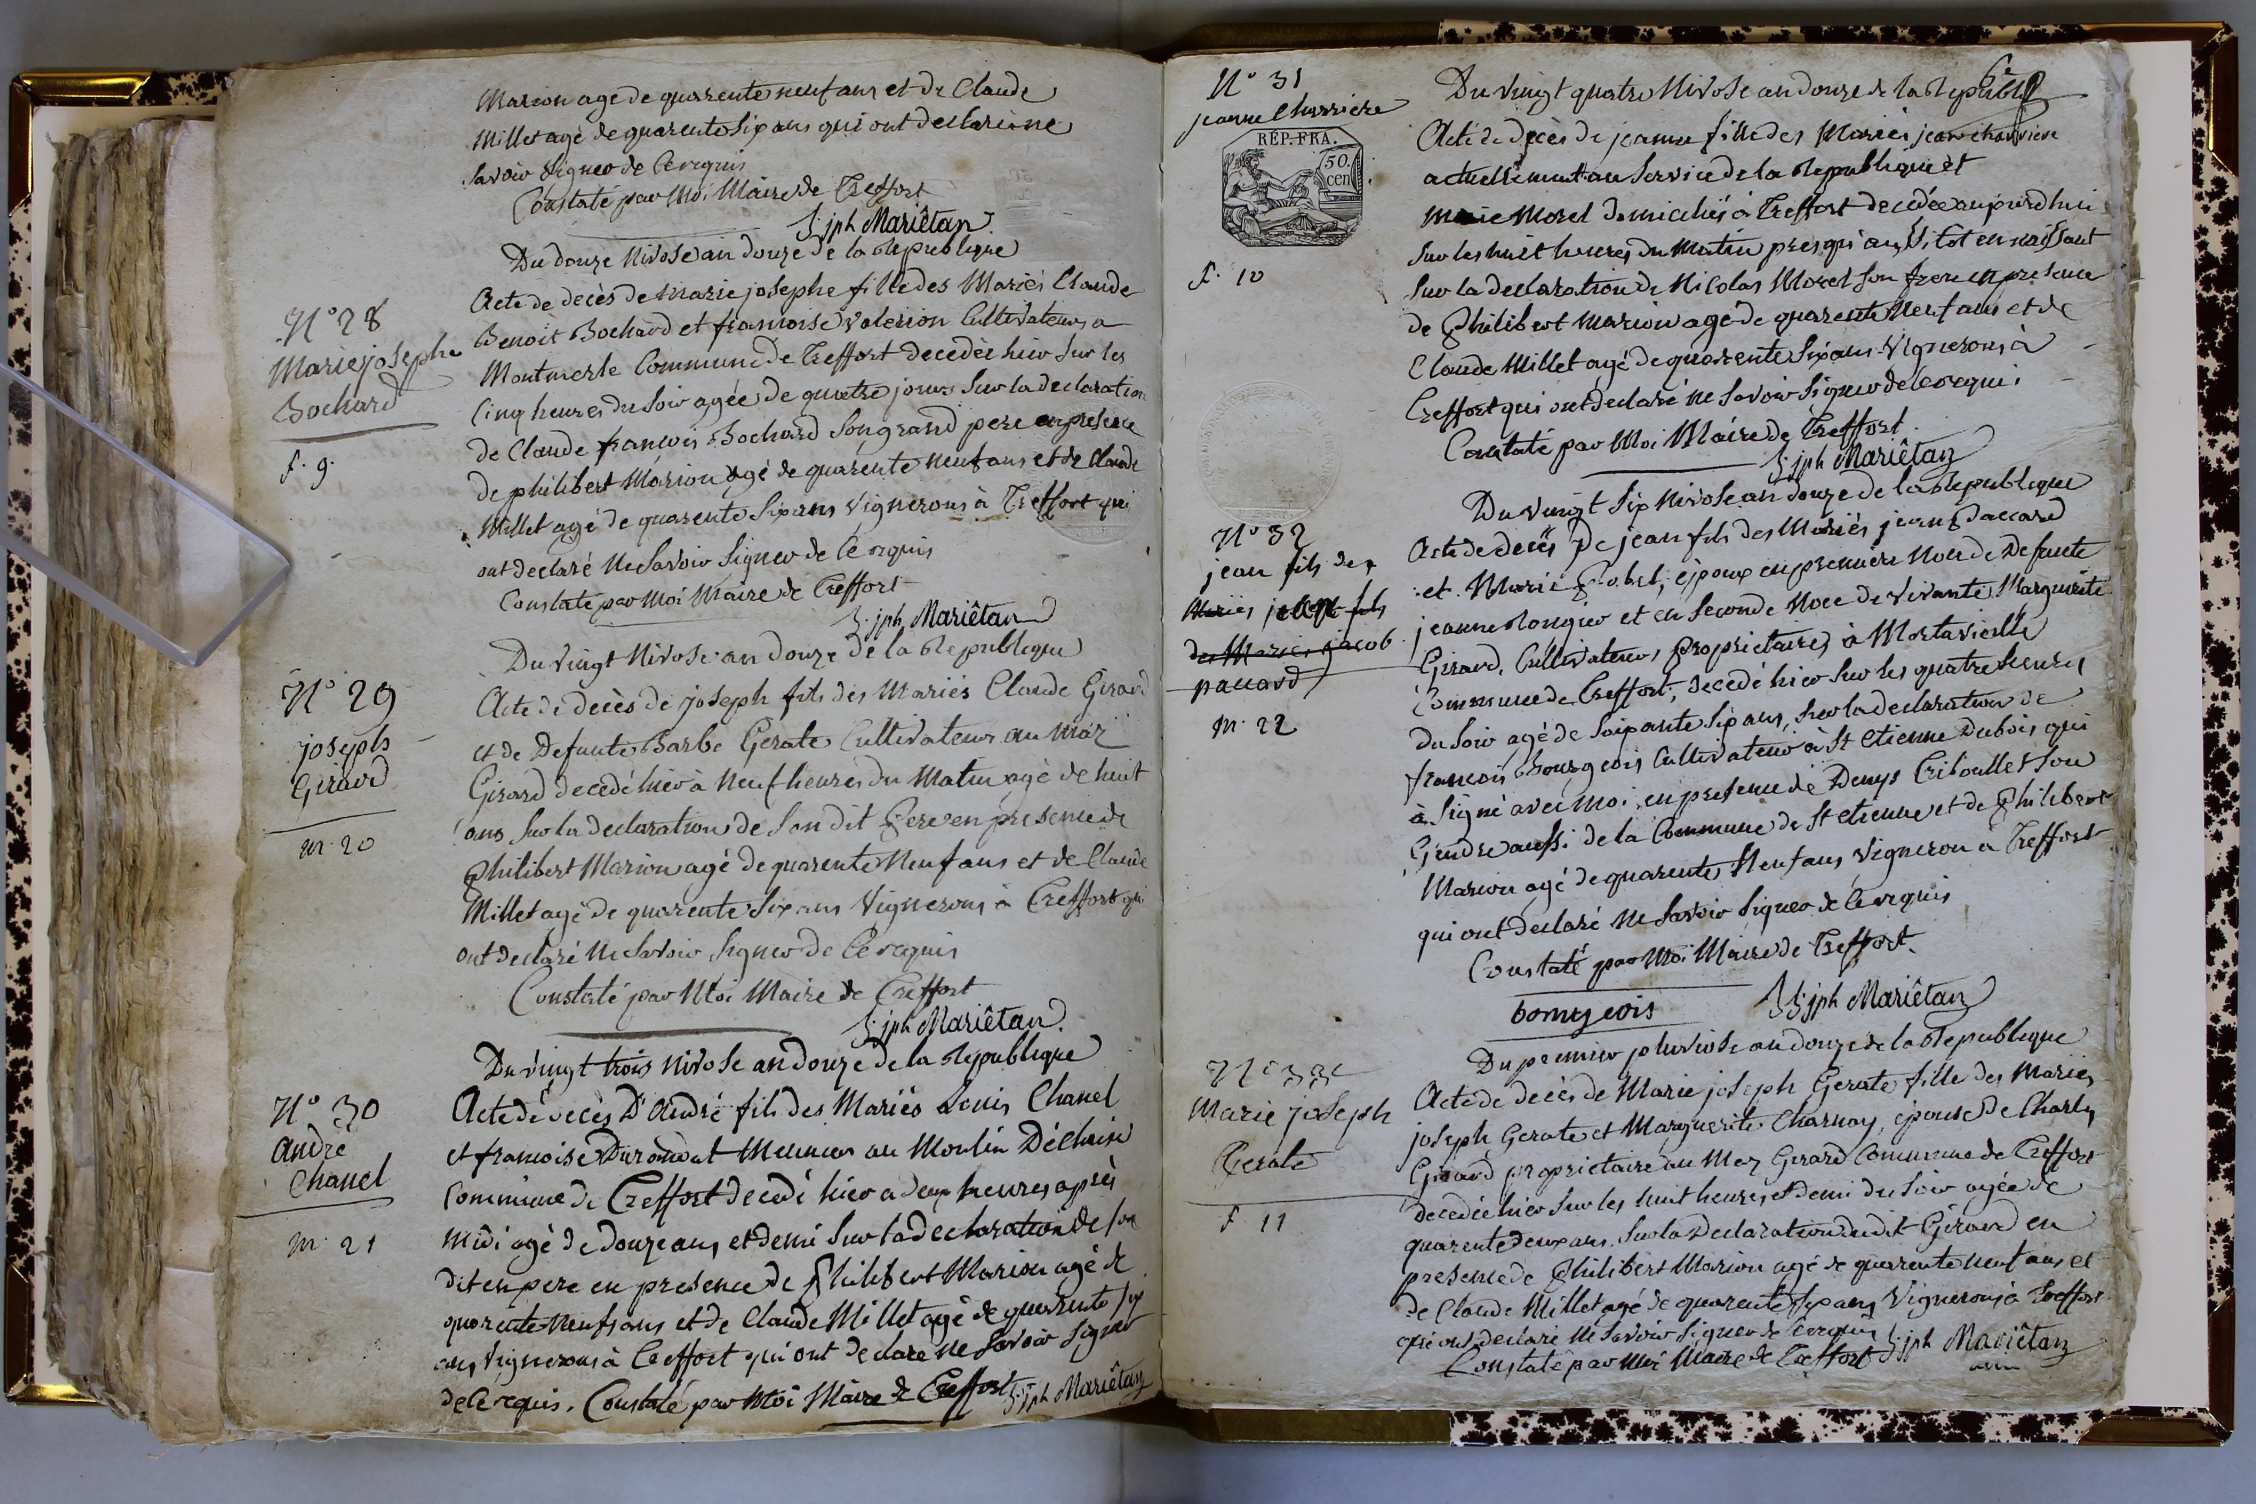 Marion agé de quarente neuf ans et de Claude
Millet agé de quarente six ans qui ont declaré ne
savoir signer de ce requis
Constaté par Moi Maire de Treffort
Mariêtan
Du douze Nivose an douze de la Republique
N° 28
Marie josephe
Bochard
f. 9.
Acte de decès de marie josephe fille des Mariés Claude
Benoit Bochard et francoise valerion Cultivateurs a
Montmerle Commune de Treffort decedée hier sur les
Cinq heures du soir agée de quatre jours sur la declaration
de Claude francois Bochard son grand pere en presence
de philibert Marion agé de quarente neuf ans et de Claude
Millet agé de quarente six ans vignerons à Treffort qui
ont declaré ne savoir signer de ce requis
Constaté par Moi Maire de Treffort
jph Mariêtan
Du vingt Nivose an douze de la Republique
N° 29
joseph
Girard
m. 20
Acte de decès de joseph fils des Mariés Claude Girard
et de Defunte Barbe Gerate Cultivateur au maz
Girard decedé hier à neuf heures du Matin agé de huit
ans sur la declaration de son dit Pere en presence de
Philibert Marion agé de quarente Neuf ans et de Claude
Millet agé de quarente six ans Vignerons à Treffort qui
ont declaré ne savoir signer de ce requis
Constaté par Moi Maire de Treffort
jph Mariêtan
Du vingt trois nivose an douze de la Republique
N° 30
André
Chanel
m. 21
Acte de decès D'André fils des Mariés Denis Chanel
et francoise Meunier au Moulin
Commune de Treffort decedé hier a deux heures après
midi agé de douze ans et demi sur la declaration de son
dit en pere en presence de Philibert Marion agé de
quarente neuf ans et de Claude Millet agé de quarente six
ans Vignerons à Treffort qui ont declaré ne savoir signer
de ce requis. Constaté par Moi Maire de Treffort jph Mariêtan
N° 31
jeanne Charriere
RÉP. FRA.
50.
cen
f. 10
Du vingt quatre Nivose an douze de la Republique
Acte de decès de jeanne fille des Mariés jean charriere
actuellement au service de la Republique et
Marie Morel domiciliés à Treffort decedée aujourdhui
sur les huit heures du matin presqu'aussitot en naissant
sur la declaration de Nicolas Morel son frere en presence
de Philibert Marion agé de quarente Neuf ans et de
Claude Millet agé de quarente six ans Vignerons à
Treffort qui ont declaré ne savoir signer de ce requi
Constaté par Moi Maire de Treffort.
jph Mariêtan
Du vingt six nivose an douze de la Republique
N° 32
jean fils des
Mariés joseph fils
des Mariés jacob
paccard
m. 22
Acte de decès De jean fils des Mariés jean Paccard
et Marie Robel, epoux en premiere Noce de Defunte
jeanne Rongier et en seconde Noce de vivante Marguerite
Girard, Cultivateur, proprietaires à Mortavieille
Commune de Treffort, decedé hier sur les quatre heures
du soir agé de soixante six ans, sur la declaration de
francois Bourgeois Cultivateur à St etienne Dubois qui
à signé avec Moi en presence de Denys son
Gendre aussi de la Commune de St etienne et de Philibert
Marion agé de quarente Neuf ans vigneron à Treffort
qui ont declaré ne savoir signer de ce requis
Constaté par Moi Maire de Treffort.
bomgeois jph Mariêtan
Du premier pluviose an douze de la Republique
N° 33
Marie joseph
Gerate
f. 11
Acte de decès de Marie joseph Gerate fille des Mariés
joseph Gerate et Marguerite Charnay, epouse de Charles
Girard proprietaire au Maz Girard Commune de Treffort
decedée hier sur les huit heures et demi du soir agée de
quarente deux ans. sur la Declaration dudit Girard en
presence de Philibert Marion agé de quarente neuf ans et
de Claude Millet agé de quarente six ans Vignerons à Treffort
qui ont declaré ne savoir signer de ce requis jph Mariêtan
Constaté par Moi Maire de Treffort